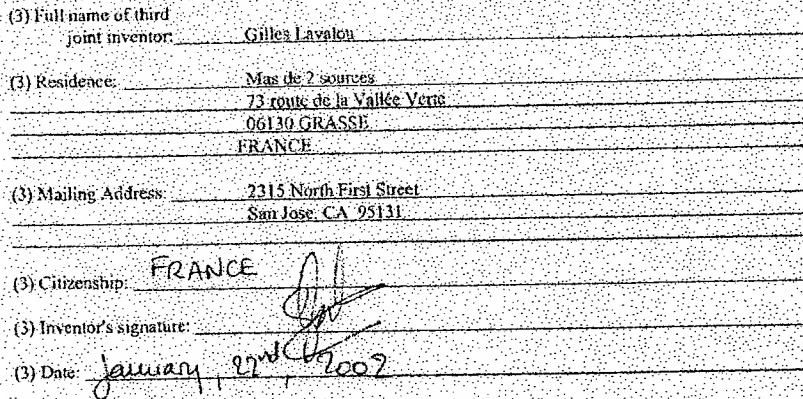 (3) Full name of third
joint inventor: Gilles Lavalou
(3) Residence: Mas de 2 sources
73 route de la Vallée Verte
06130 GRASSE
FRANCE
(3) Mailing Address: 2315 North First Street
San Jose, CA 95131
(3) Citizenship: FRANCE
(3) Inventor's signature:
(3) Date: January, 22nd, 2002